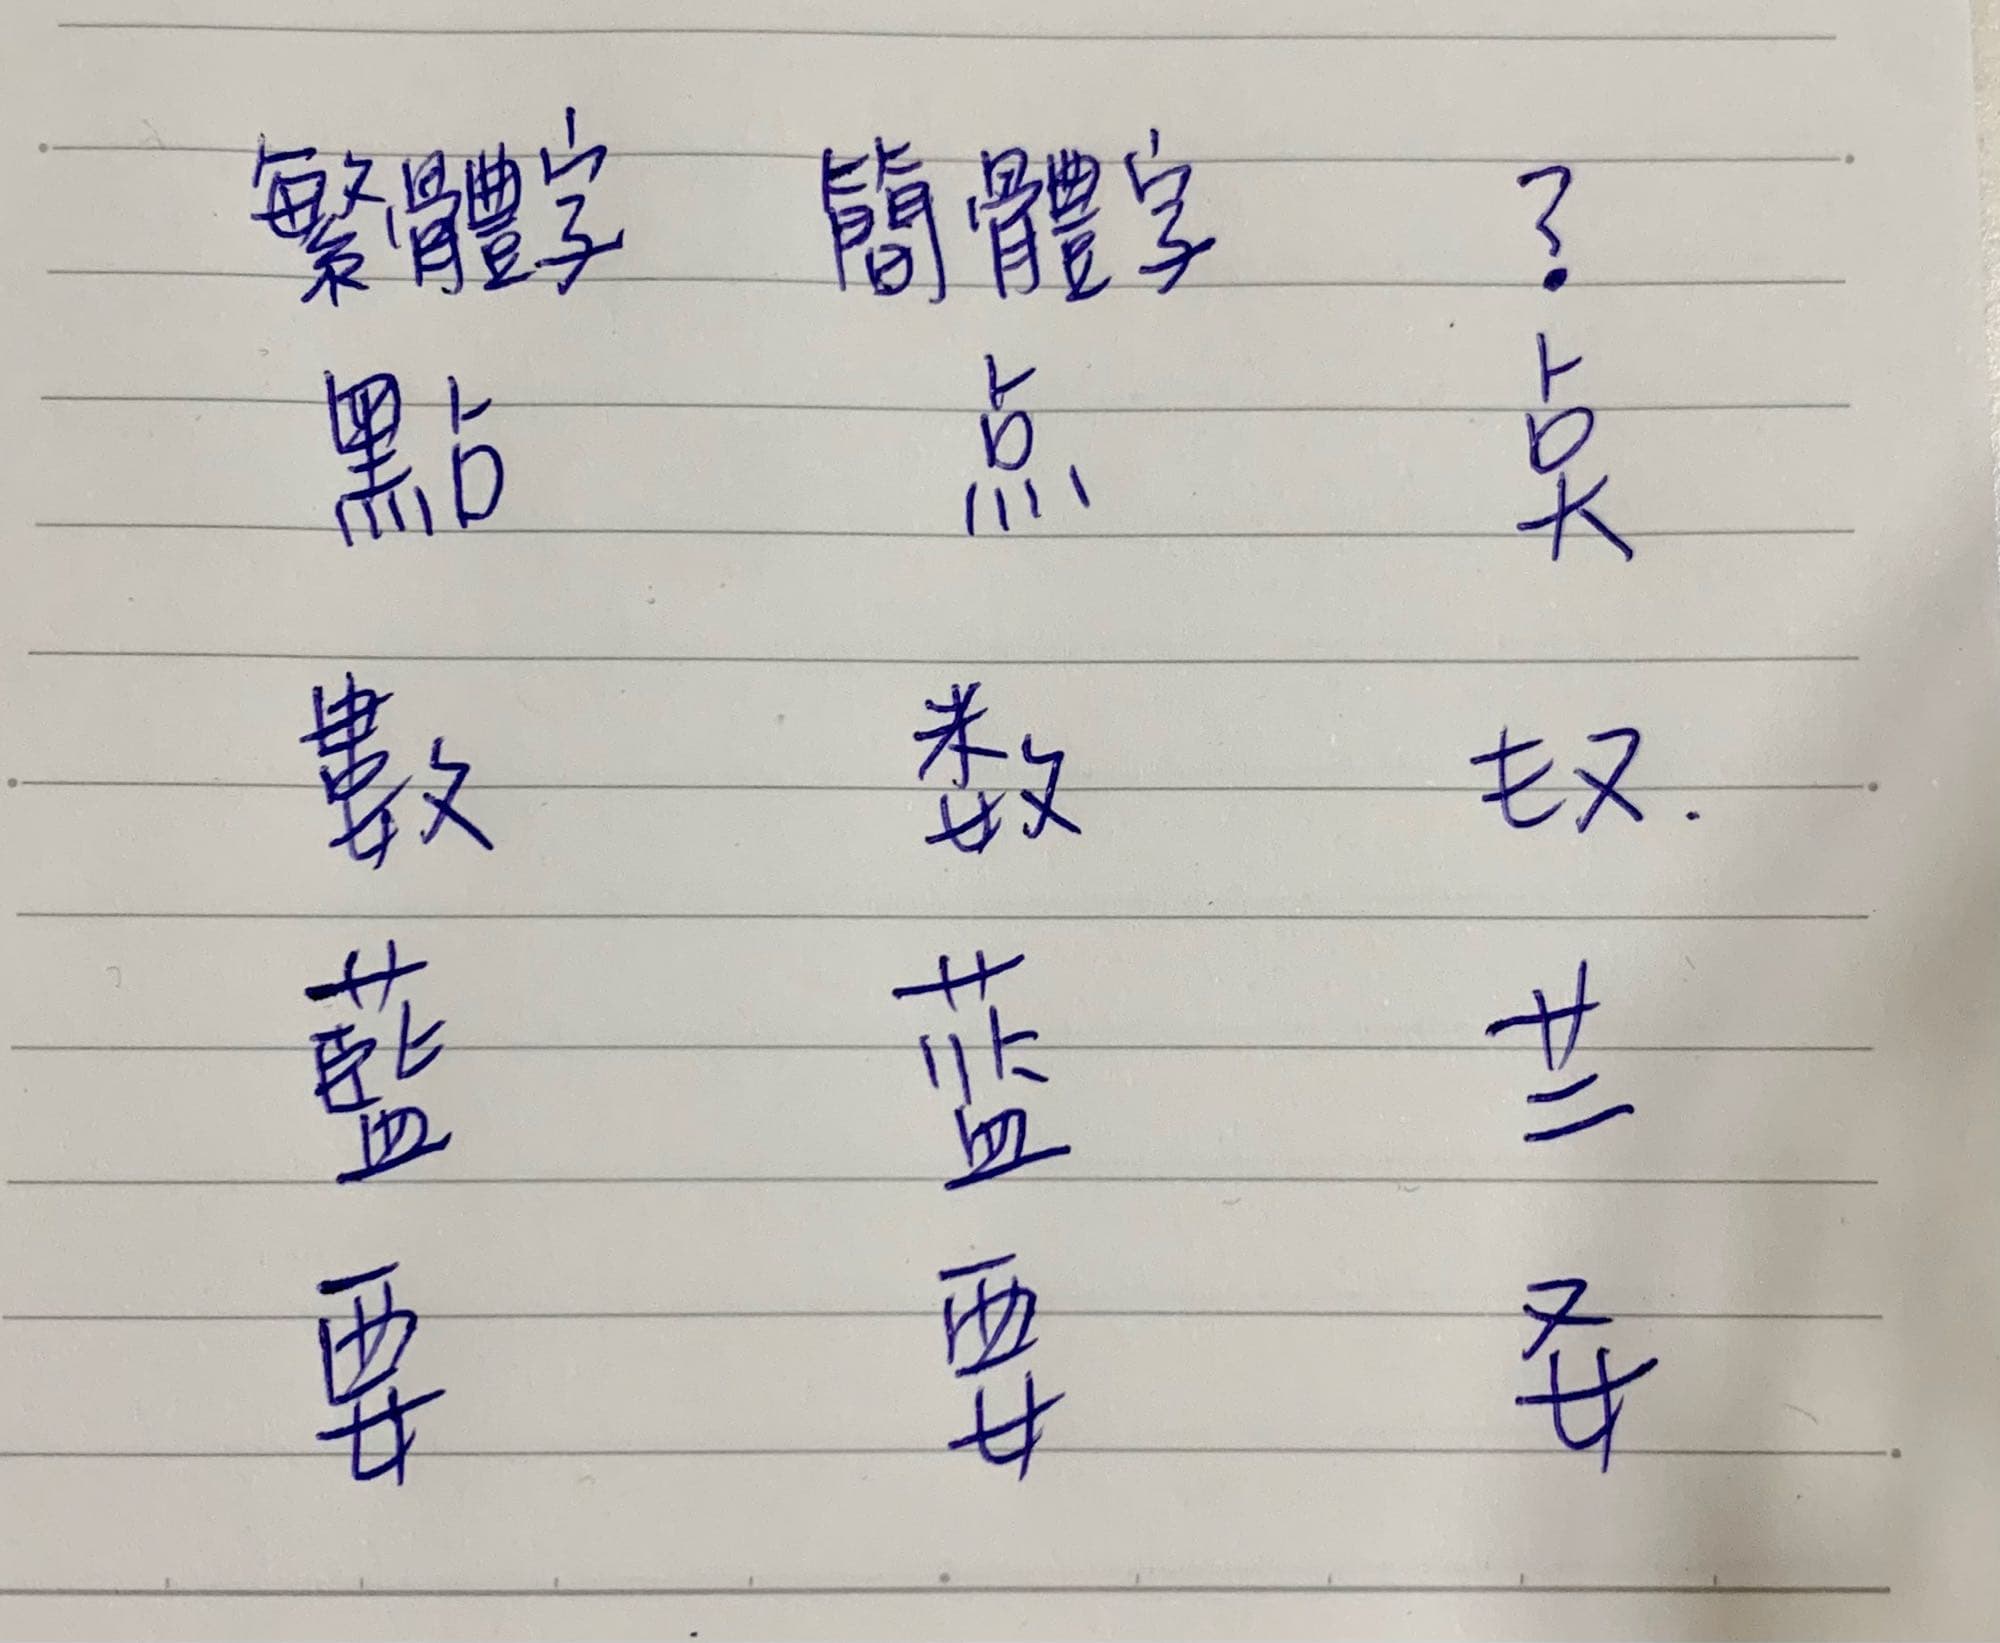 繁體字 簡體字 ?
點 点 奌
數 数
藍 蓝 艺
要 要